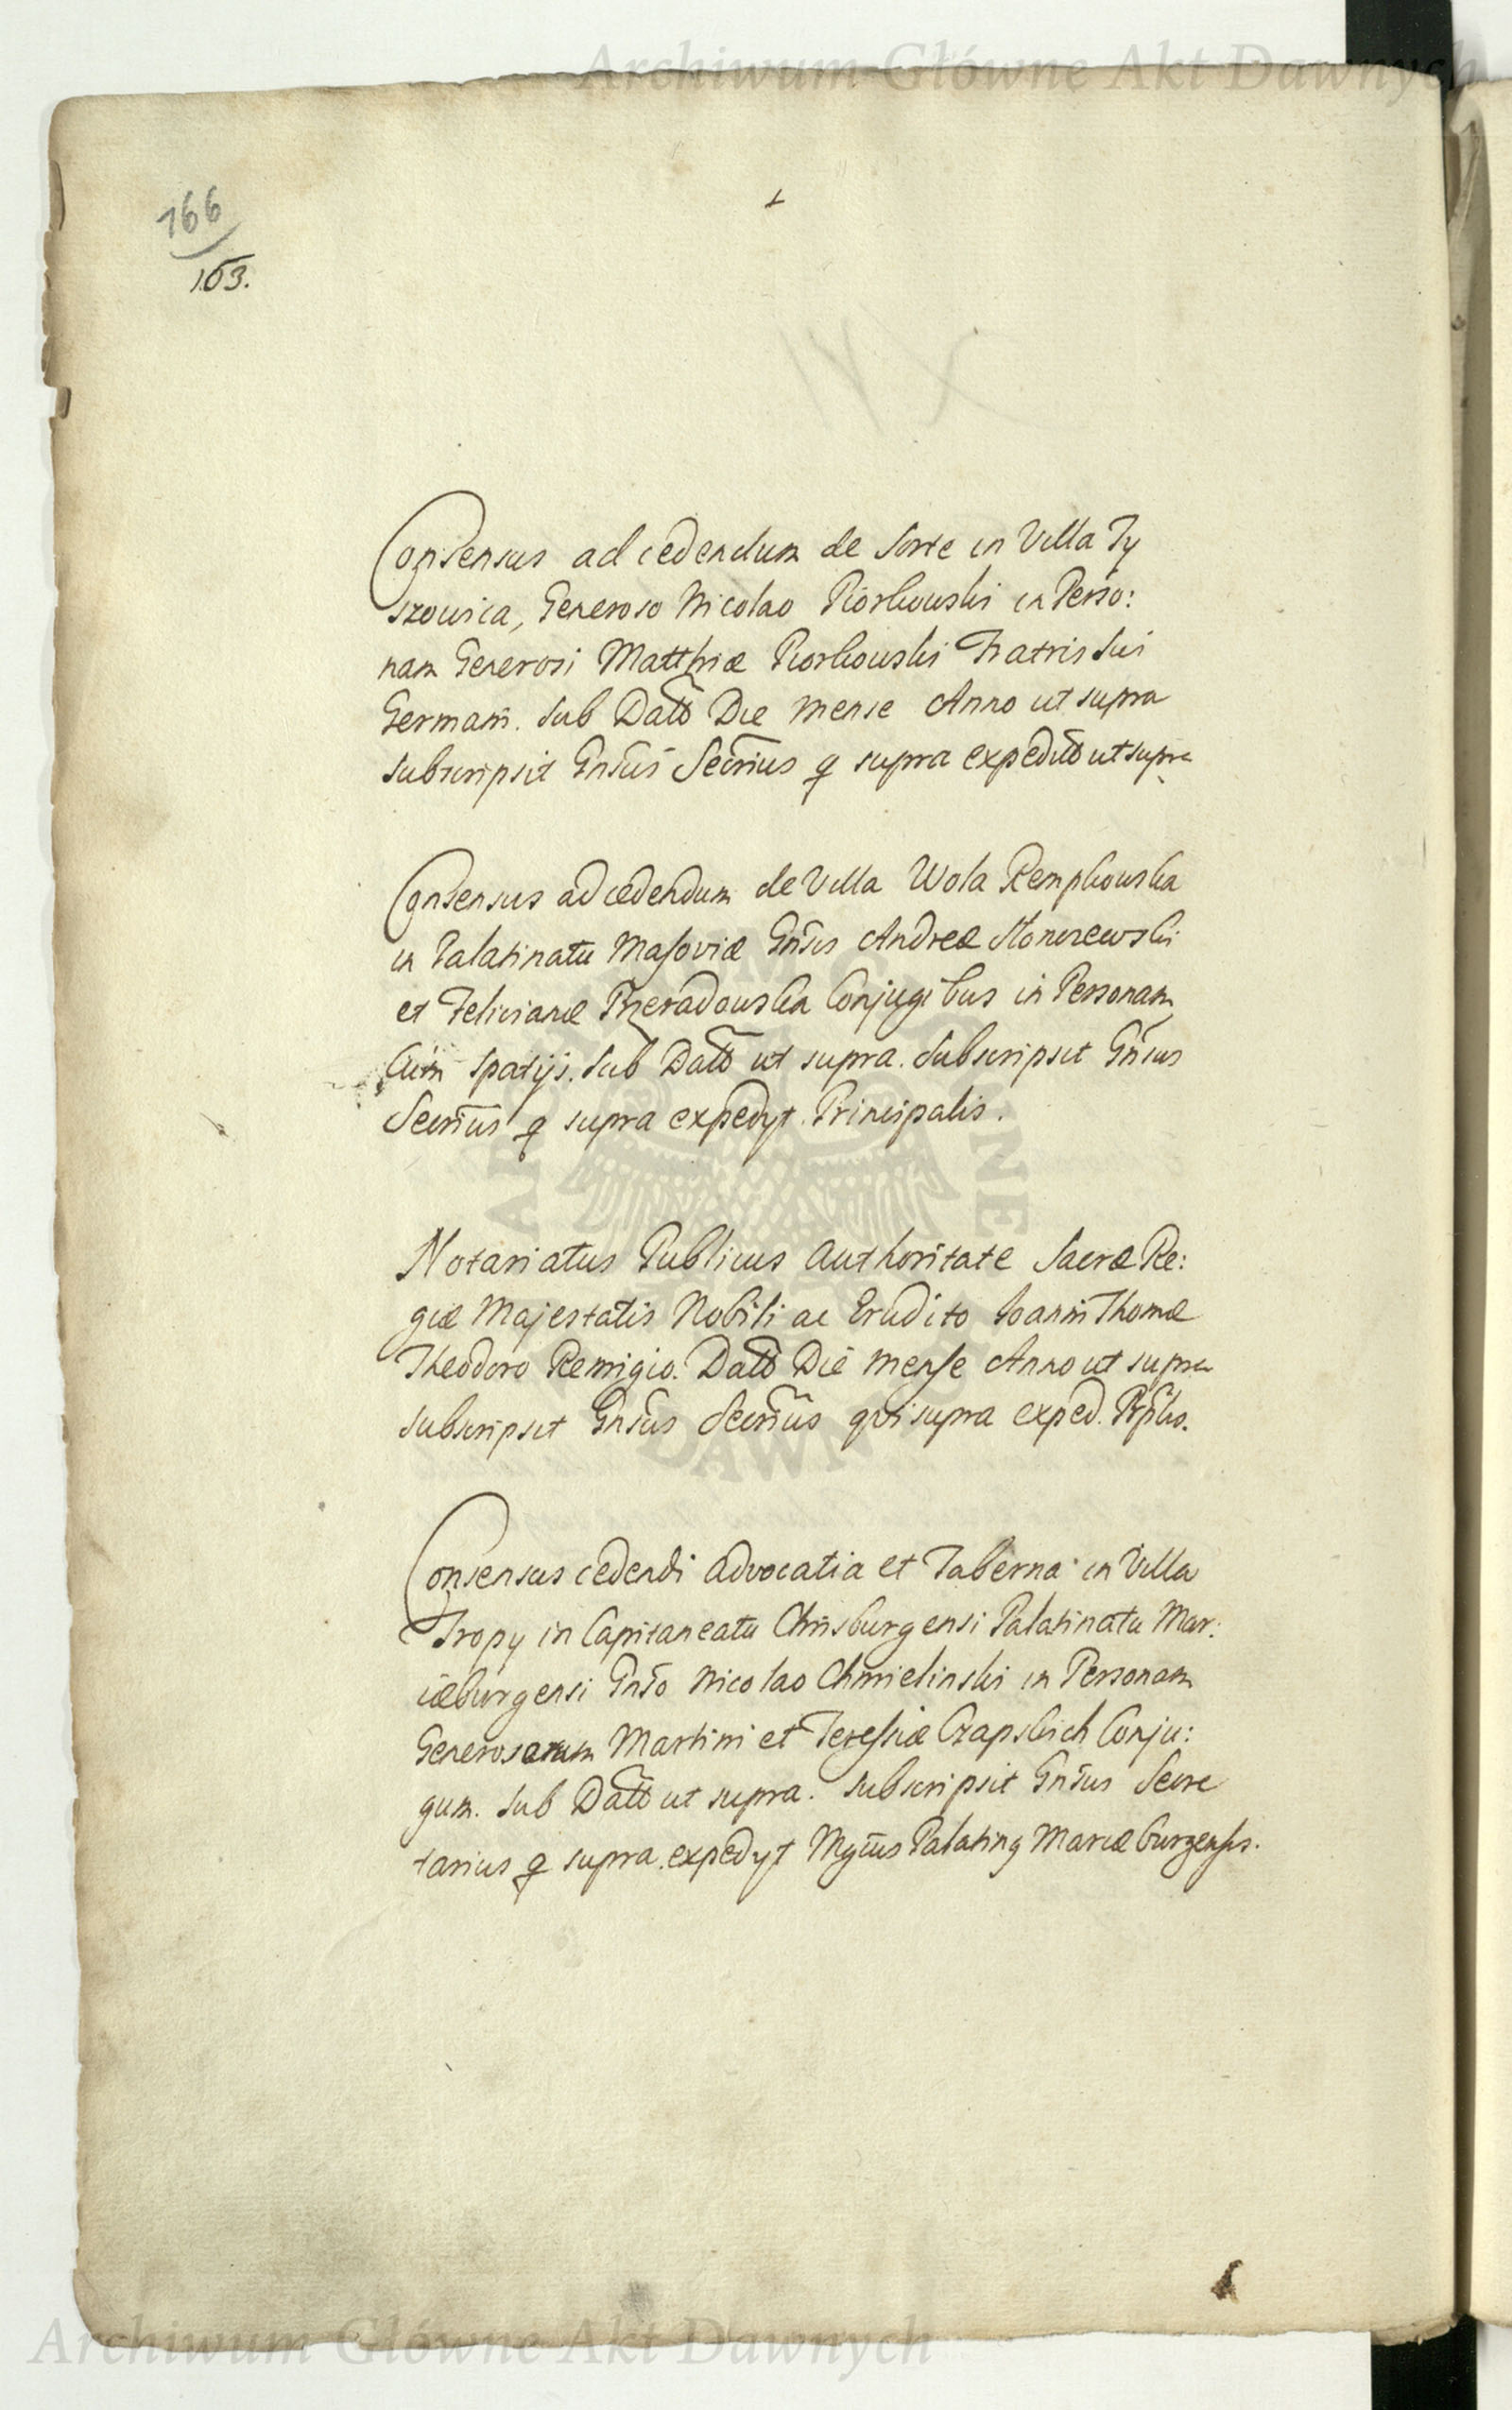 Archiwum Główne Akt Dawnych
166
163.
Consensus ad cedendum de Sorte in Villa Ty
szowica, Generoso Nicolao Piorkowski in Perso:
nam Generosi Matthiæ Piorkowski Fratris Sui
Germani. Sub Datt Die Mense Anno ut supra
subscripsit Gnsus Secrius q supra expedit ut supra
Consensus ad cedendum de Villa Wola Rempkowska
in Palatinatu Masoviæ Gnsis Andreæ
et Felicianæ Conjugibus in Personam
Cum spatijs. Sub Datt ut supra. Subscripsit Gnsus
Secrius q supra expedyt Principalis.
Notariatus Publicus Authoritate Sacræ Re:
giæ Majestatis Nobili ac Erudito Joanni Thomæ
Theodoro Remigio. Datt Die Mense Anno ut supra
subscripsit Gnsus Secrius qvi supra exped. Prplis.
Consensus cedendi Advocatia et Taberna in Villa
Tropy in Capitaneatu Chrisburgensi Palatinatu Mar:
iæburgensi Gnso Nicolao Chmielinski in Personam
Generosorum Martini et Teressiæ Czapskich Conju:
gum. Sub Datt ut supra. Subscripsit Gnsus Secre
tarius q supra expedyt Mgcus Palating Mariæburgensis.
ARCHIWUM GŁÓWNE AKT DAWNYCH
Archiwum Główne Akt Dawnych